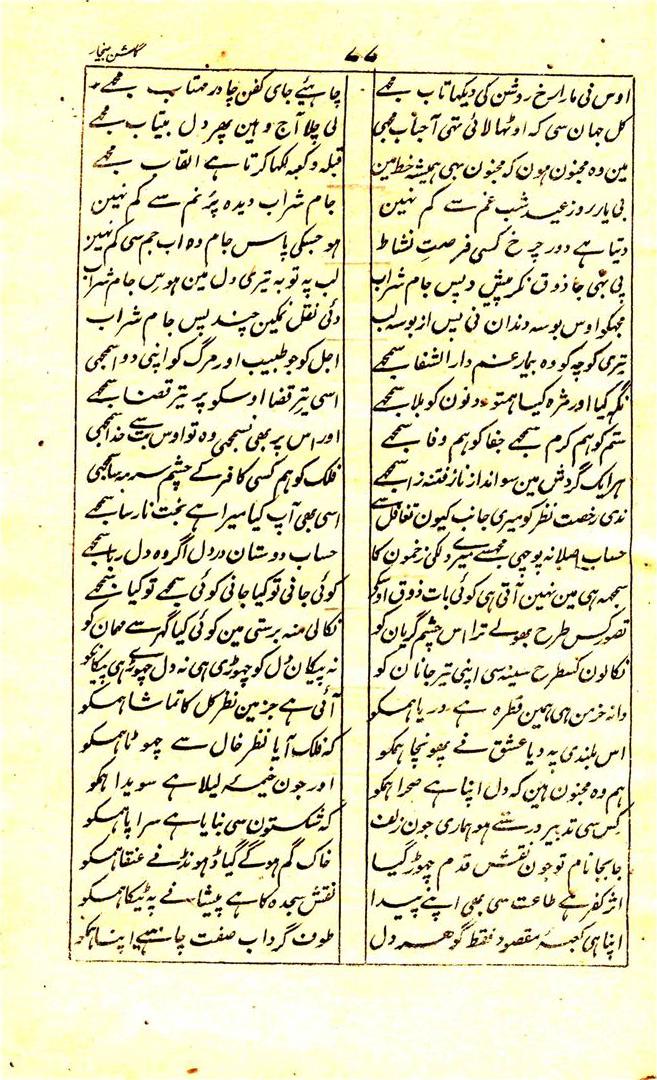 گلشن بیخار
۷۷
اوس نی مارا رخ روشن کی دیکھا تاب مجھے چاہئیے جای کفن چادر مہتاب مجھے
کل جہان سی کہ اوٹھا لائی تہی احباب مجھی لی چلا آج وہین پھر دل بیتاب مجھے
مین وہ مجنون ہون کہ مجنون بہی ہمیشہ خط مین قبلہ و کعبہ لکھا کرتا ہے القاب مجھے
بی یار روز عید شب غم سے کم نہین جام شراب دیدہ پر نم سے کم نہین
دیتا ہے دور چرخ کسی فرصت نشاط ہو جسکی پاس جام وہ اب جم سی کم نہین
پی بہی جا ذوق نکر پیش و پس جام شراب لب پہ توبہ تیری دل مین ہوس جام شراب
مجھکو اوس بوسہ دندان نی پس از بوسہ لب دئی نقل نمکین چند پس جام شراب
تیری کوچہ کو وہ بیمار غم دار الشفا سمجھے اجل کو جو طبیب اور مرگ کو اپنی دوا سمجھی
نگہ کیا اور مژہ کیا ہمتو دونون کو بلا سمجھے اسی تیر قضا اوسکو پر تیر قضا سمجھے
ستم کو ہم کرم سمجھے جفا کو ہم وفا سمجھے اور اس پر بھی نسمجھی وہ تو اوس بت سے خدا سمجھی
ہر ایک گردش مین سو انداز ناز فتنہ زا سمجھے فلک کو ہم کسی کافر کے چشم سرمہ سا سمجھی
ندی رخصت نظر کو میری جانب کیون تغافل سے اسی بھی آپ کیا میرا ہے بخت نارسا سمجھے
حساب اصلا نہ پوچھی مجھسے میرے دلکی زخمون کا حساب دوستان در دل اگر وہ دل ربا سمجھے
سمجہہ ہی مین نہین آتی ہی کوئی بات ذوق اوسکی کوئی جانی تو کیا جانی کوئی سمجھے تو کیا سمجھے
تصور کس طرح بھولے ترا اس چشم گریان کو نکالی منہ برستی مین کوئی کیا گھر سے مہمان کو
نکالون کسطرح سینہ سی اپنی تیر جانان کو نہ پیکان دل کو چھوڑی ہی نہ دل چھوڑے ہی پیکانکو
دانہ خرمن ہی ہمین قطرہ ہے دریا ہمکو آئی ہے جز مین نظر کل کا تماشا ہمکو
اس بلندی پہ دیا عشق نے پھونچا ہمکو کہ فلک آیا نظر خال سے چھوٹا ہمکو
ہم وہ مجنون ہین کہ دل اپنا ہے صحرا ہمکو اور جون خیمۂ لیلا ہے سویدا ہمکو
کس سی تدبیر درستے ہو ہماری جون زلف کہ شکستون سی بنایا ہے سراپا ہمکو
جابجا نام تو جون نقش قدم چھوڑ گیا خاک گم ہو گے گیا ڈھونڈنے عنقا ہمکو
اثر کفر ہے طاعت سی بھی اپنے پیدا نقش سجدہ کا ہے پیشانے پہ ٹیکا ہمکو
اپنا ہی کعبۂ مقصود فقط گوہر دل طوف گرداب صفت چاہئے اپنا ہمکو